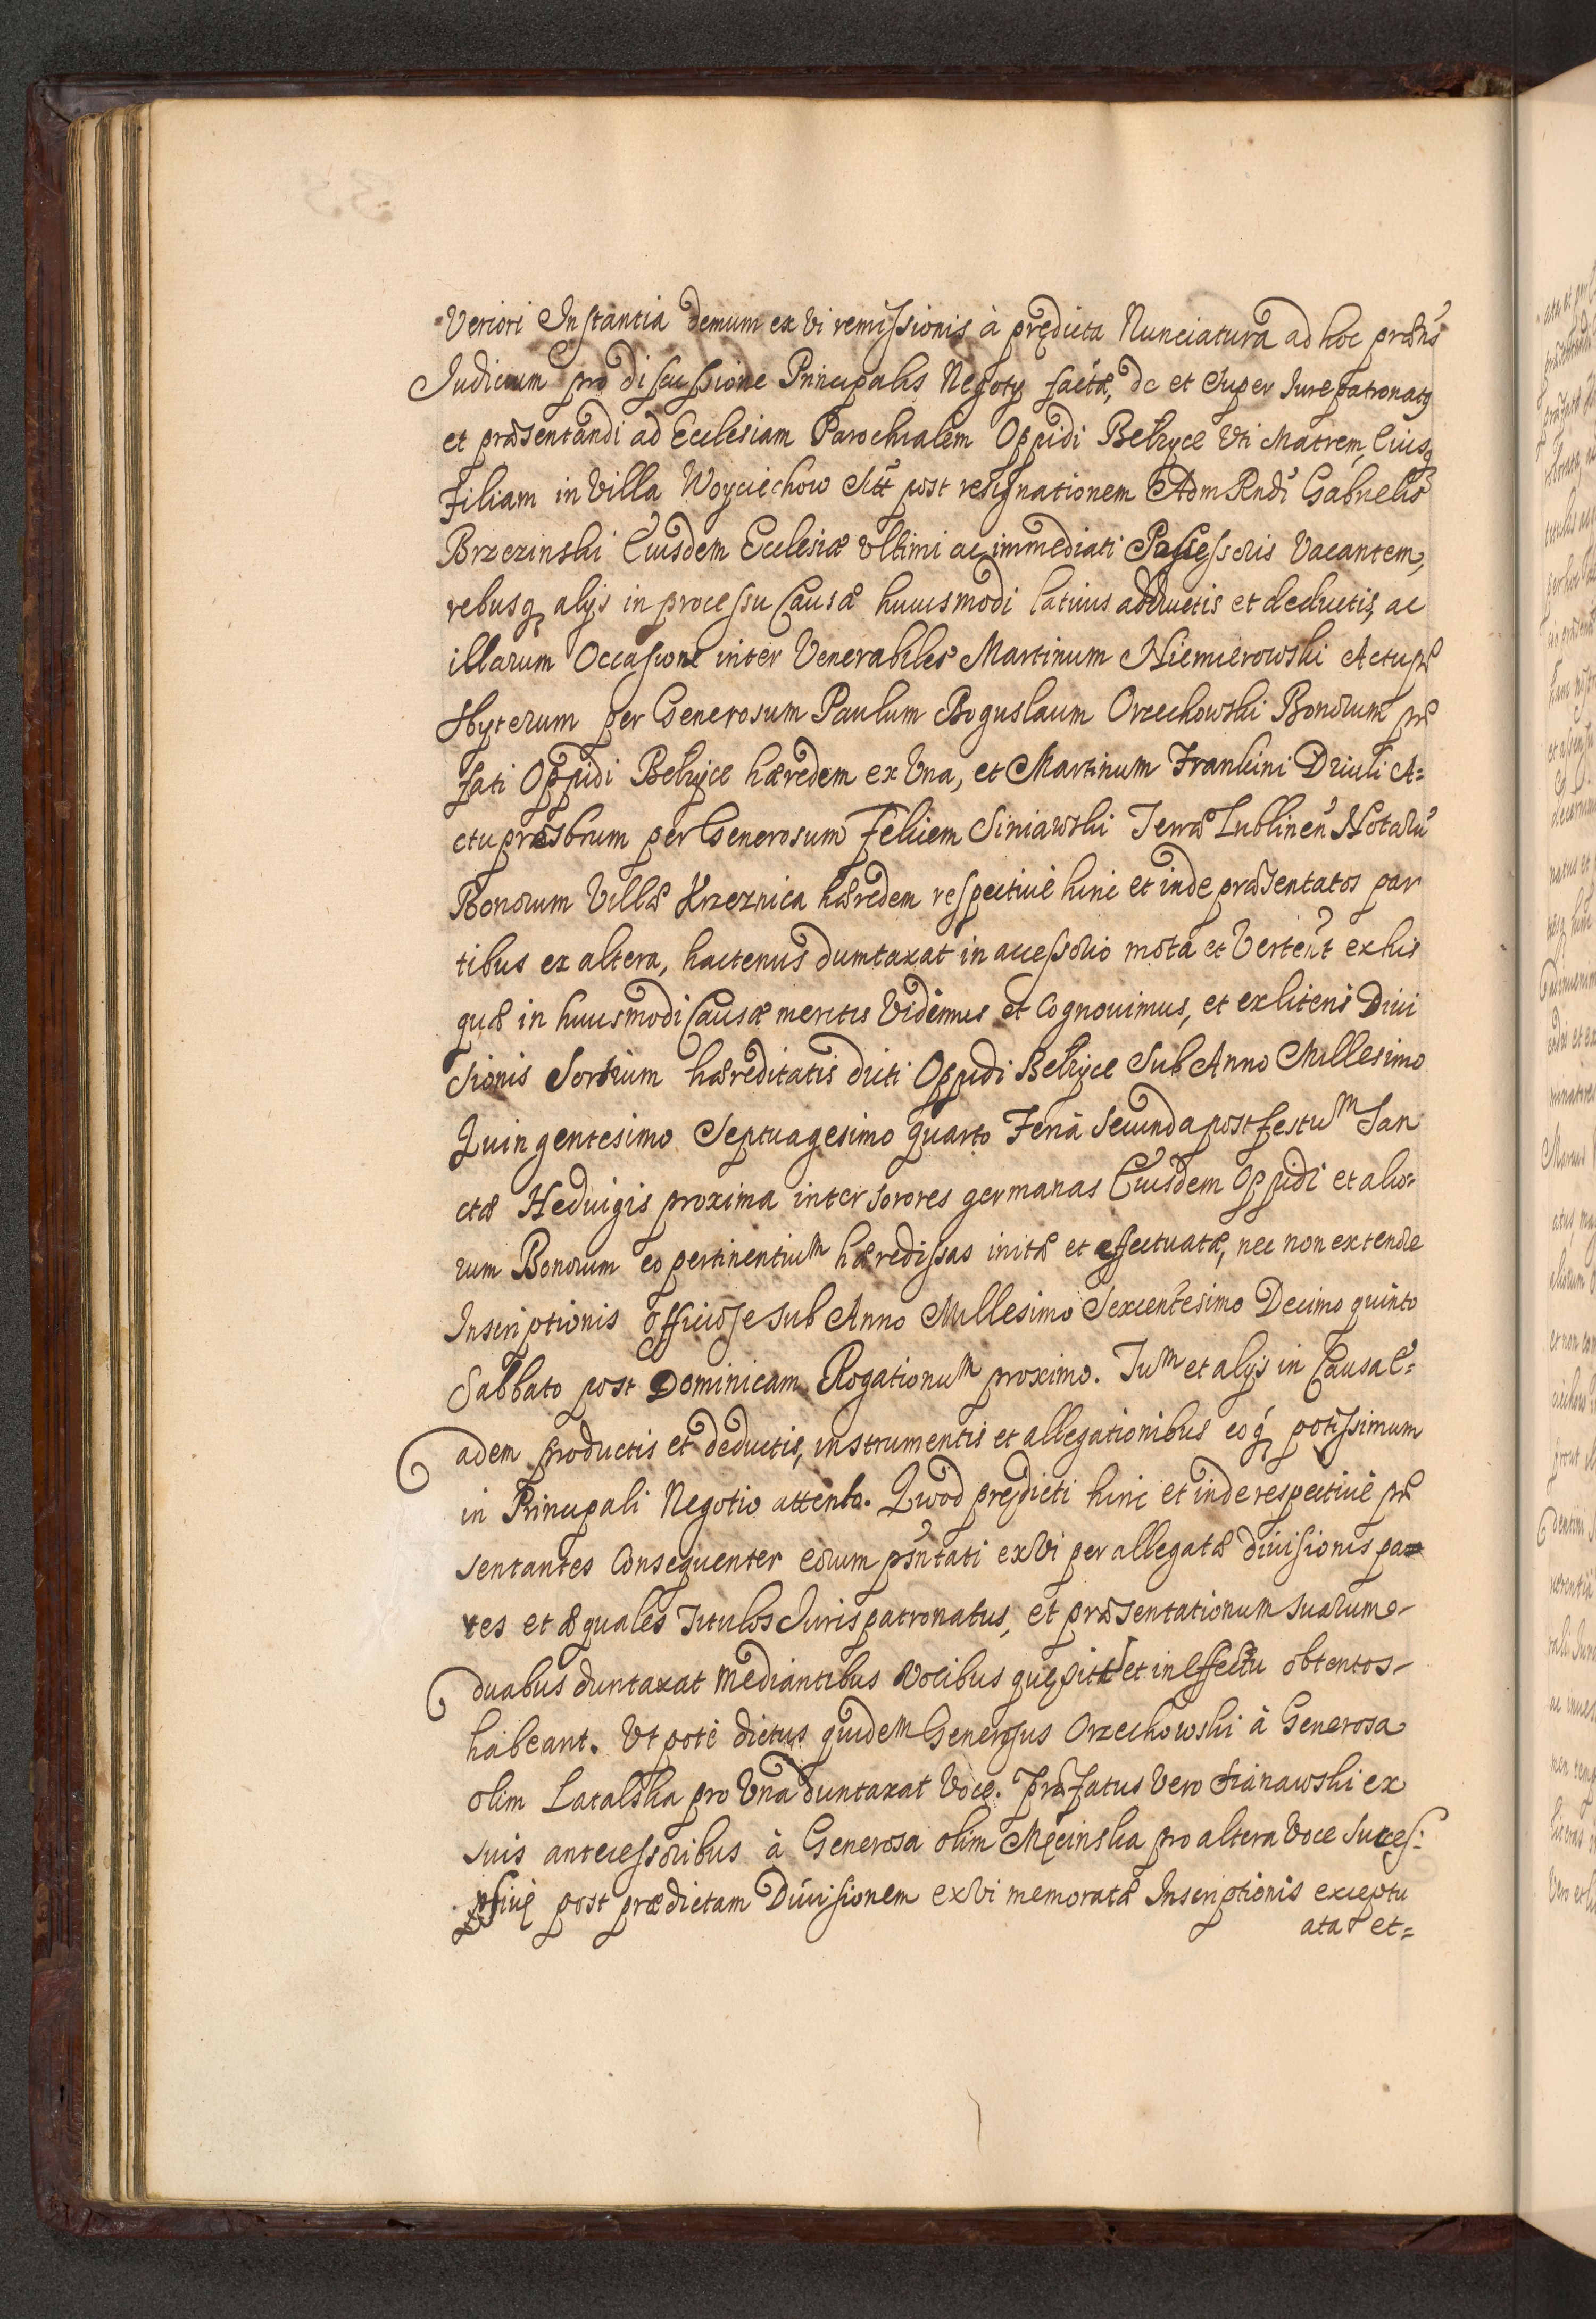 Veriori Instantia demum ex Vi remissionis à prędicta Nunciatura ad hoc præns
Judicium pro discussione Principalis Negoty factæ, de et Super Jurepatronatus
et præsentandi ad Ecclesiam Parochialem Oppidi Belzyce Vti Matrem, Eiusq
Filiam in Villa Woyciechow Sitt post resignationem Adm Rndi Gabrielis
Brzezinski Eiusdem Ecclesiæ Vltimi ac immediati Possessoris Vacantem,
rebusq alijs in processu Causæ huiusmodi latius adductis et deductis, ac
illarum Occasione inter Venerabiles Martinum Niemierowski Actupræ
sbyterum per Generosum Paulum Boguslaum Orzechowski Bonorum præ
fati Oppidi Belzyce hæredem ex Vna, et Martinum Frankini Driuli A=
ctupræsbrum per Generosum Felicem Siniawski Terræ Lublinen Notariu
Bonorum Villæ Krzeznica hæredem respectiuè hinc et inde præsentatos par
tibus ex altera, hactenus dumtaxat in accessorio mota et Vertent ex his
quæ in huiusmodi Causæ meritis Vidimus et Cognouimus, et ex literis Diui
sionis Sortium hæreditatis dicti Oppidi Belzyce Sub Anno Millesimo
Quingentesimo Septuagesimo quarto Feriâ Secunda post festum San
ctæ Heduigis proxima inter sorores germanas Eiusdem Oppidi et alio=
rum Bonorum eo pertinentium hæredissas initæ et effectuatæ, nec non ex tenore
Inscriptionis officiose sub Anno Millesimo Sexcentesimo Decimo quinto
Sabbato post Dominicam Rogationum proximo. Tum et alijs in Causa E=
adem productis et deductis, instrumentis et allegationibus eoq potissimum
in Principali Negotio attento. Quod prędicti hinc et inde respectiuè præ
sentantes Consequenter eorum psntati ex Vi per allegatæ diuisionis pa
res et æquales Titulos Jurispatronatus, et præsentationum suarum
duabus duntaxat mediantibus Vocibus et in Effectu obtentos
habeant. Vt potè dictus quidem Generosus Orzechowski à Generosa
olim Latalska pro Vna duntaxat Voce. Præfatus Vero Sianawski ex
suis antecessoribus à Generosa olim Męcinska pro altera Voce Succes:
siuę post prædictam Diuisionem ex Vi memoratæ Inscriptionis exceptu
atæ et=